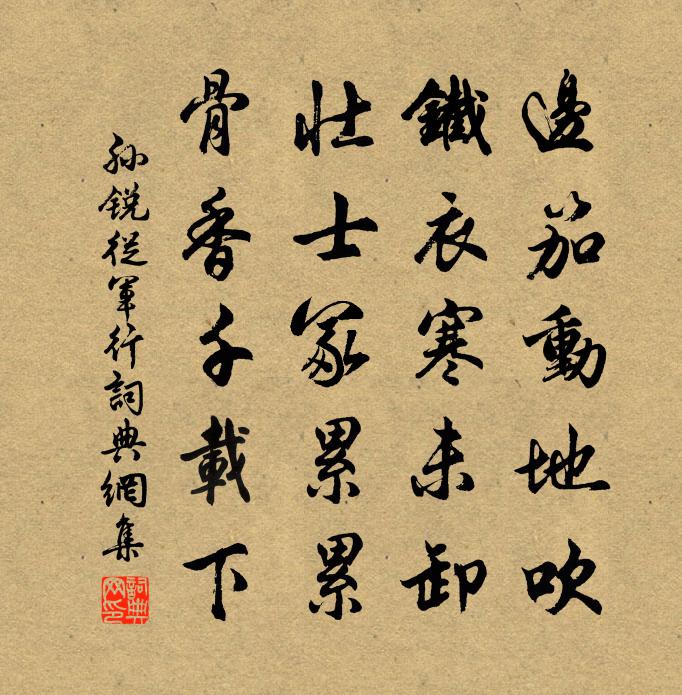 邊笳動地吹
鐵衣寒未卸
壯士冢累累
骨香千載下
孙銳從軍行詞典網集
詞典網印